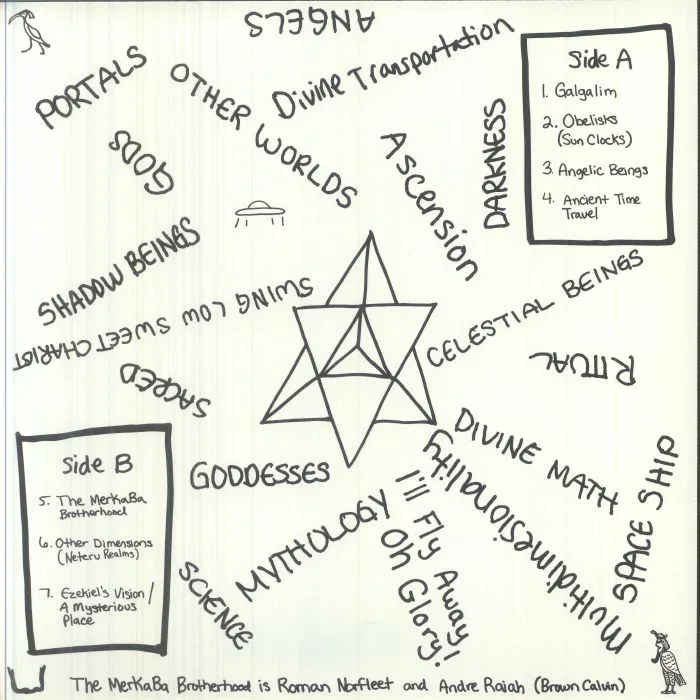 ANGELS
PORTALS
OTHER WORLDS
Divine Transportation
GODS
Ascension
DARKNESS
Side A
1. Galgalim
2. Obelisks
(Sun Clocks)
3. Angelic Beings
4. Ancient Time
Travel
SHADOW BEINGS
SWING LOW SWEET CHARIOT
CELESTIAL BEINGS
RITUAL
SACRED
GODDESSES
DIVINE MATH
Multidimesionality
SPACE SHIP
MYTHOLOGY
I'll Fly Away!
Oh Glory!
SCIENCE
Side B
5. The MerKaBa
Brotherhood
6. Other Dimensions
(Neteru Realms)
7. Ezekiel's Vision/
A Mysterious
Place
The MerKaBa Brotherhood is Roman Norfleet and Andre Raiah (Brown Calvin)